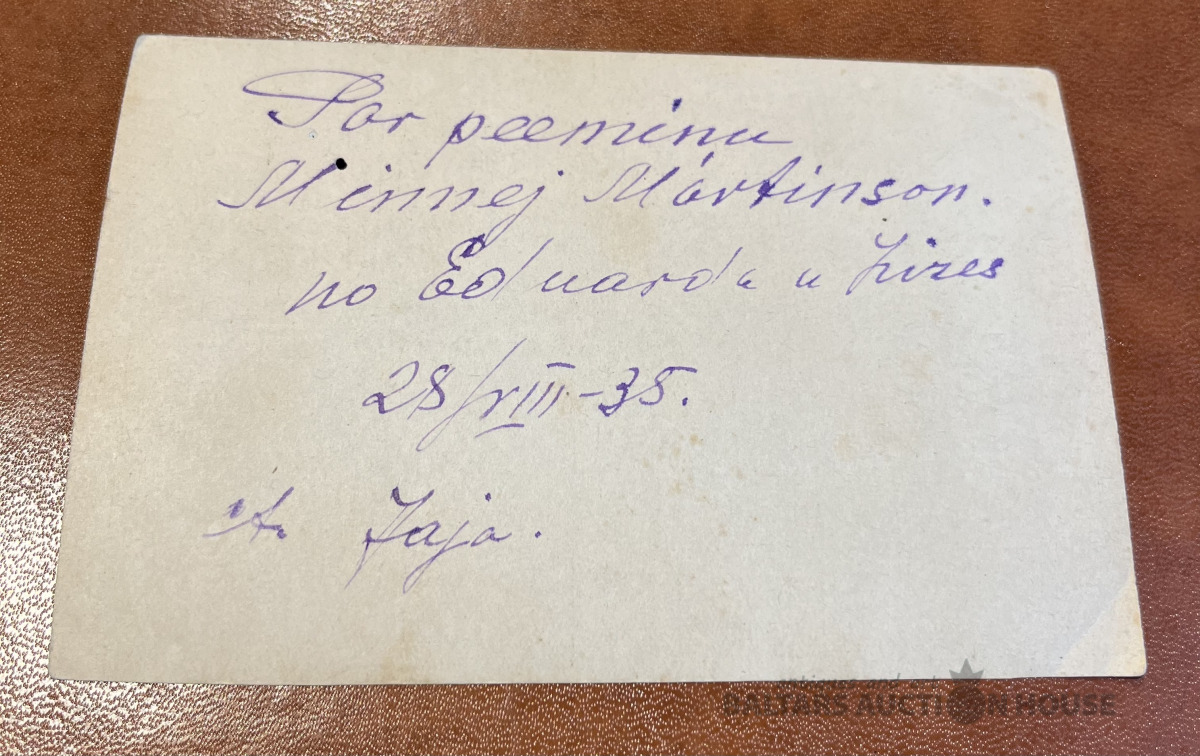 Par peeminu
Minnej Mártinson.
no Eduarda u Lizes
28/VIII-35.
A. Jaja.
BALTARS AUCTION HOUSE